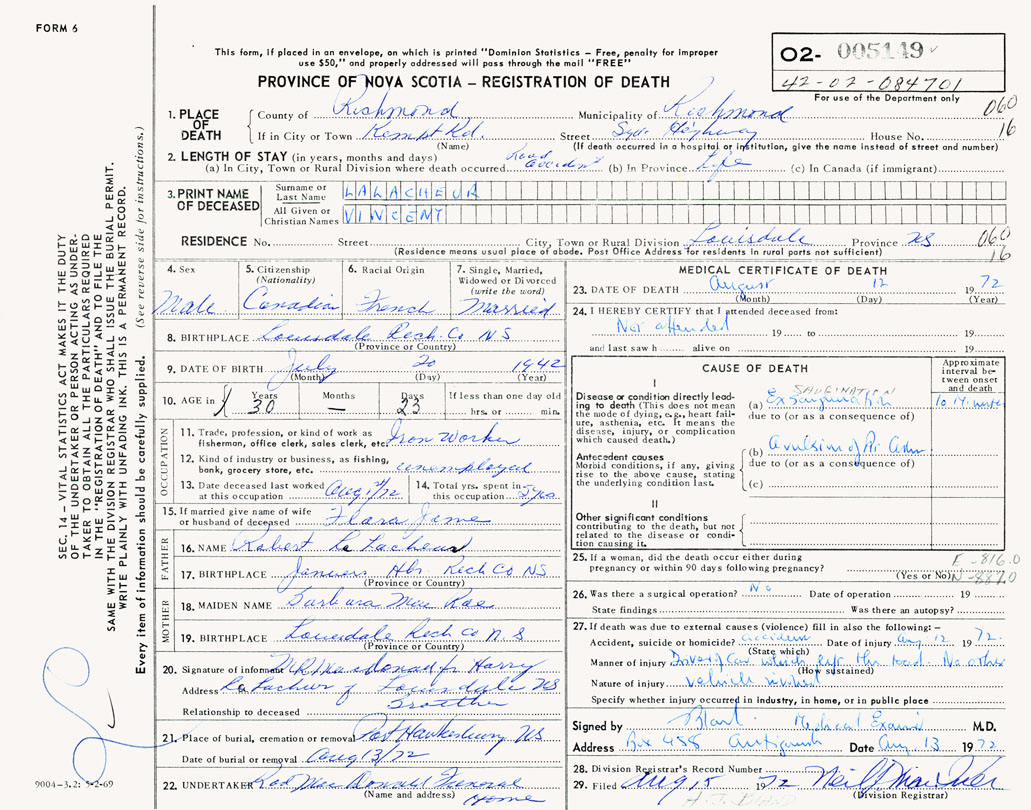 FORM 6
This form, if placed in an envelope, on which is printed "Dominion Statistics – Free, penalty for improper
use $50," and properly addressed will pass through the mail "FREE"
PROVINCE OF NOVA SCOTIA – REGISTRATION OF DEATH
O2- 005149
42-02-084701
For use of the Department only
060
16
1. PLACE OF DEATH
County of Richmond Municipality of Richmond
If in City or Town Kempt Rd. Street Highway House No.
(Name) (If death occurred in a hospital or institution, give the name instead of street and number)
2. LENGTH OF STAY (in years, months and days)
(a) In City, Town or Rural Division where death occurred Road accident (b) In Province Life (c) In Canada (if immigrant)
3. PRINT NAME OF DECEASED
Surname or Last Name LALACHEUR
All Given or Christian Names VINCENT
RESIDENCE No. Street City, Town or Rural Division Louisdale Province NS
060
16
(Residence means usual place of abode. Post Office Address for residents in rural parts not sufficient)
4. Sex Male
5. Citizenship (Nationality) Canadian
6. Racial Origin French
7. Single, Married, Widowed or Divorced (write the word) Married
8. BIRTHPLACE Louisdale Rich. Co NS
(Province or Country)
9. DATE OF BIRTH July 20 1942
(Month) (Day) (Year)
10. AGE in Years 30 Months — Days 23 If less than one day old hrs. or min.
OCCUPATION
11. Trade, profession, or kind of work as
fisherman, office clerk, sales clerk, etc. Iron Worker
12. Kind of industry or business, as fishing,
bank, grocery store, etc. unemployed
13. Date deceased last worked
at this occupation Aug 72
14. Total yrs. spent in
this occupation 5 yrs
15. If married give name of wife
or husband of deceased Flora Jame
FATHER
16. NAME Robert La Lacheur
17. BIRTHPLACE Janvers Hbr. Rich Co NS
(Province or Country)
MOTHER
18. MAIDEN NAME Barbara Mac Rae
19. BIRTHPLACE Louisdale Rich Co N.S
(Province or Country)
20. Signature of informant Harry
Address La Lacheur Louisdale NS
Relationship to deceased Brother
21. Place of burial, cremation or removal Port Hawkesbury NS
Date of burial or removal Aug 13/72
22. UNDERTAKER Rod Mac Donald Funeral
(Name and address) Home
MEDICAL CERTIFICATE OF DEATH
23. DATE OF DEATH August 12 1972
(Month) (Day) (Year)
24. I HEREBY CERTIFY that I attended deceased from:
Not attended 19 to 19
and last saw h alive on 19
CAUSE OF DEATH
Approximate interval between onset and death
I
Disease or condition directly leading to death (This does not mean the mode of dying, e.g., heart failure, asthenia, etc. It means the disease, injury, or complication which caused death.)
SANGINATION
(a) Exsanguination 10 14
due to (or as a consequence of)
Antecedent causes
Morbid conditions, if any, giving rise to the above cause, stating the underlying condition last.
(b) Avulsion of Rt Arm
due to (or as a consequence of)
(c)
II
Other significant conditions
contributing to the death, but not related to the disease or condition causing it.
25. If a woman, did the death occur either during
pregnancy or within 90 days following pregnancy? (Yes or No)
E-816.0
N-887.0
26. Was there a surgical operation? No Date of operation 19
State findings Was there an autopsy?
27. If death was due to external causes (violence) fill in also the following: –
Accident, suicide or homicide? accident Date of injury Aug 12 1972.
(State which)
Manner of injury Driver of Car which left the road. No other
(How sustained)
Nature of injury vehicle involved
Specify whether injury occurred in industry, in home, or in public place
Signed by Bland Medical Exam M.D.
Address Box 488 Antigonish Date Aug. 13 1972
28. Division Registrar's Record Number
29. Filed Aug 15 1972
(Division Registrar)
H.J. BLAND
SEC. 14 – VITAL STATISTICS ACT MAKES IT THE DUTY
OF THE UNDERTAKER OR PERSON ACTING AS UNDER-
TAKER TO OBTAIN ALL THE PARTICULARS REQUIRED
IN THE "REGISTRATION OF DEATH" AND TO FILE THE
SAME WITH THE DIVISION REGISTRAR WHO SHALL ISSUE THE BURIAL PERMIT.
WRITE PLAINLY WITH UNFADING INK. THIS IS A PERMANENT RECORD.
Every item of information should be carefully supplied. (See reverse side for instructions.)
9004-3.2: 5-2-69